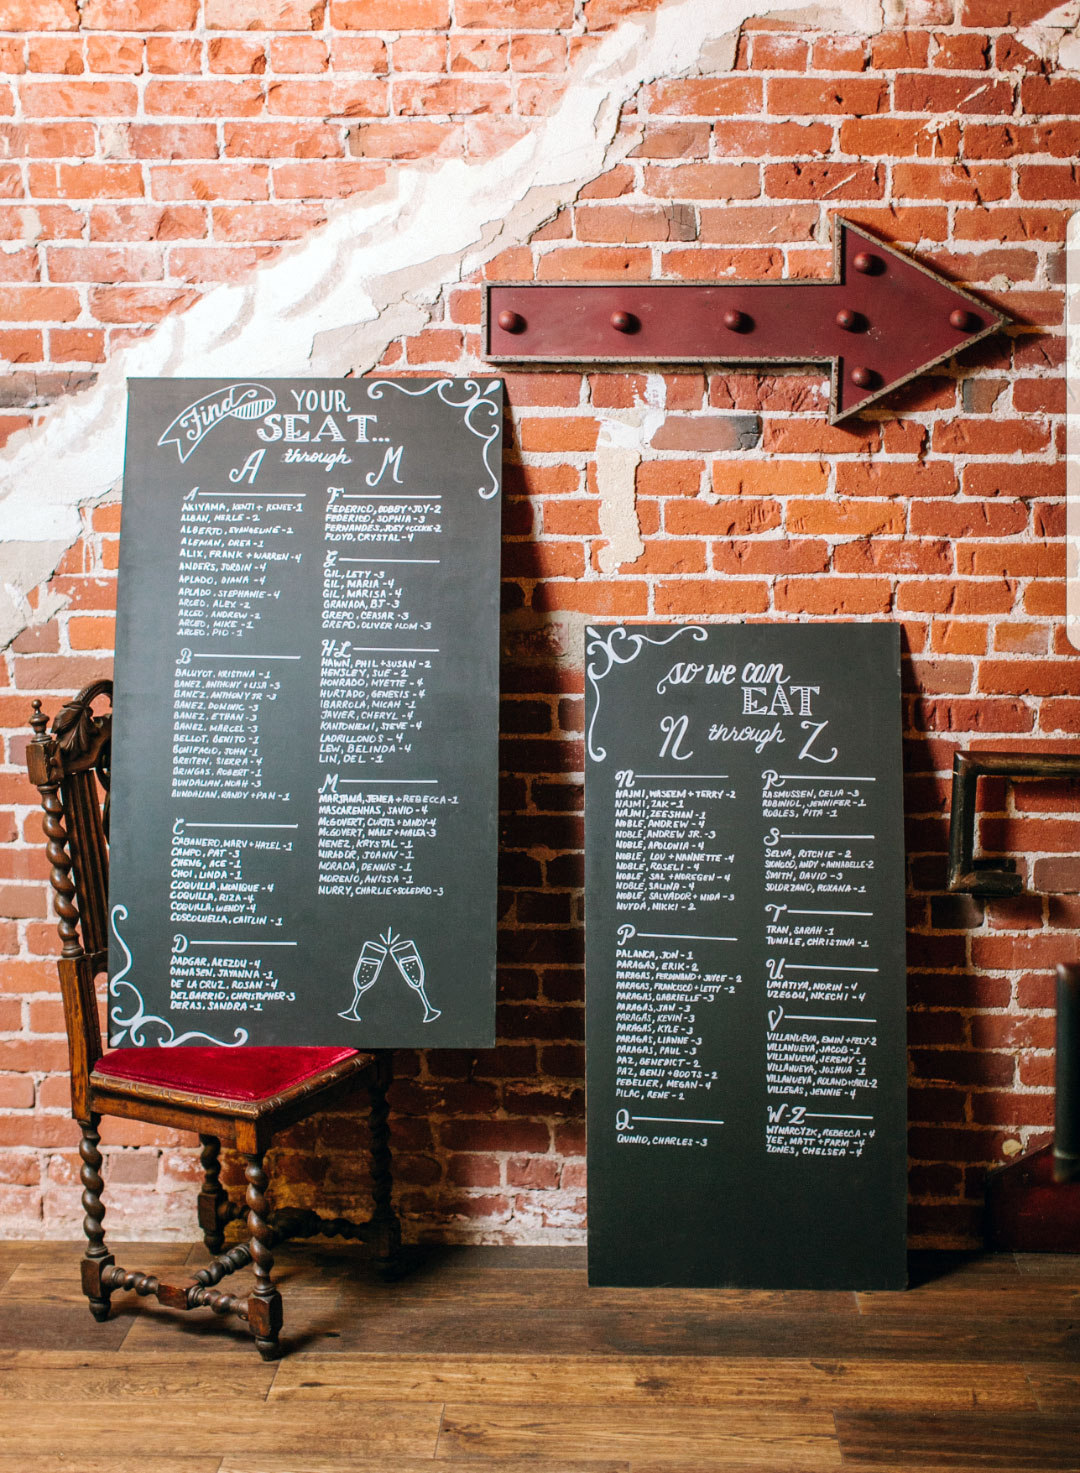 Find YOUR
SEAT...
A through M
A
AKIYAMA, KENTI + RENEE -1
ALBAN, MERLE - 2
ALBERTO, EVANGELINE - 2
ALEMAN, DREA - 1
ALIX, FRANK + WARREN - 4
ANDERS, JORDIN - 4
APLADO, DIANA - 4
APLADO, STEPHANIE - 4
ARCEO, ALEX - 2
ARCEO, ANDREW - 2
ARCEO, MIKE - 1
ARCEO, PIO - 1
B
BALUYOT, KRISTINA - 1
BANEZ, ANTHONY + LISA - 3
BANEZ, ANTHONY JR - 3
BANEZ, DOMINIC - 3
BANEZ, ETHAN - 3
BANEZ, MARCEL - 3
BELLOT, BENITO - 1
BONIFACIO, JOHN - 1
BREITEN, SIERRA - 4
BRINGAS, ROBERT - 1
BUNDALIAN, NOAH - 3
BUNDALIAN, RANDY + PAM - 1
C
CABANERO, MARV + HAZEL - 1
CAMPO, PAT - 3
CHENG, ACE - 1
CHOI, LINDA - 1
COQUILLA, MONIQUE - 4
COQUILLA, RIZA - 4
COQUILLA, WENDY - 4
COSCOLUELLA, CAITLIN - 1
D
DADGAR, AREZOU - 4
DAMASEN, JAYANNA - 1
DE LA CRUZ, ROSAN - 4
DELBARRIO, CHRISTOPHER - 3
DERAS, SANDRA - 1
F
FEDERICO, BOBBY + JOY - 2
FEDERICO, SOPHIA - 3
FERNANDES, JOEY + COOKIE - 2
FLOYD, CRYSTAL - 4
G
GIL, LETY - 3
GIL, MARIA - 4
GIL, MARISA - 4
GRANADA, BJ - 3
GREPO, CEASAR - 3
GREPO, OLIVER - 3
H-L
HAWN, PHIL + SUSAN - 2
HENSLEY, SUE - 2
HONRADO, MYETTE - 4
HURTADO, GENESIS - 4
IBARROLA, MICAH - 1
JAVIER, CHERYL - 4
KANTONIEMI, STEVE - 4
LADRILLONOS - 4
LEW, BELINDA - 4
LIN, DEL - 1
M
MARIANA, JENEA + REBECCA - 1
MASCARENHAS, SAVIO - 4
McGOVERT, CURTIS + DANDY - 4
McGOVERT, WAILE + MALEA - 3
MENEZ, KRYSTAL - 1
MIRADOR, JOANN - 1
MORADA, DENNIS - 1
MORENO, ANISSA - 1
MURRY, CHARLIE + SOLEDAD - 3
so we can
EAT
N through Z
N
NAJMI, WASEEM + TERRY - 2
NAJMI, ZAK - 1
NAJMI, ZEESHAN - 1
NOBLE, ANDREW - 4
NOBLE, ANDREW JR. - 3
NOBLE, APOLONIA - 4
NOBLE, LOU + NANNETTE - 4
NOBLE, ROSELI - 4
NOBLE, SAL + NOREGEN - 4
NOBLE, SALINA - 4
NOBLE, SALVADOR + NIDA - 3
NUYDA, NIKKI - 2
P
PALANCA, JON - 1
PARAGAS, ERIK - 2
PARAGAS, FERDINAND + JOYCE - 2
PARAGAS, FRANCISCO + LETTY - 2
PARAGAS, GABRIELLE - 3
PARAGAS, JAN - 3
PARAGAS, KEVIN - 3
PARAGAS, KYLE - 3
PARAGAS, LIANNE - 3
PARAGAS, PAUL - 3
PAZ, BENEDICT - 2
PAZ, BENJI + BOOTS - 2
PEBELIER, MEGAN - 4
PILAC, RENE - 2
Q
QUINIO, CHARLES - 3
R
RASMUSSEN, CELIA - 3
ROBINIOL, JENNIFER - 1
ROBLES, PITA - 1
S
SELVA, RITCHIE - 2
SIONGCO, ANDY + ANNABELLE - 2
SMITH, DAVID - 3
SOLORZANO, ROXANA - 1
T
TRAN, SARAH - 1
TUMALE, CHRISTINA - 1
U
UMATIYA, NORIN - 4
UZEGBU, NKECHI - 4
V
VILLANUEVA, EMIN + FELY - 2
VILLANUEVA, JACOB - 1
VILLANUEVA, JEREMY - 1
VILLANUEVA, JOSHUA - 1
VILLANUEVA, ROLAND + ARIEL - 2
VILLEGAS, JENNIE - 4
W-Z
WYNARCZYK, REBECCA - 4
YEE, MATT + FARM - 4
ZONES, CHELSEA - 4